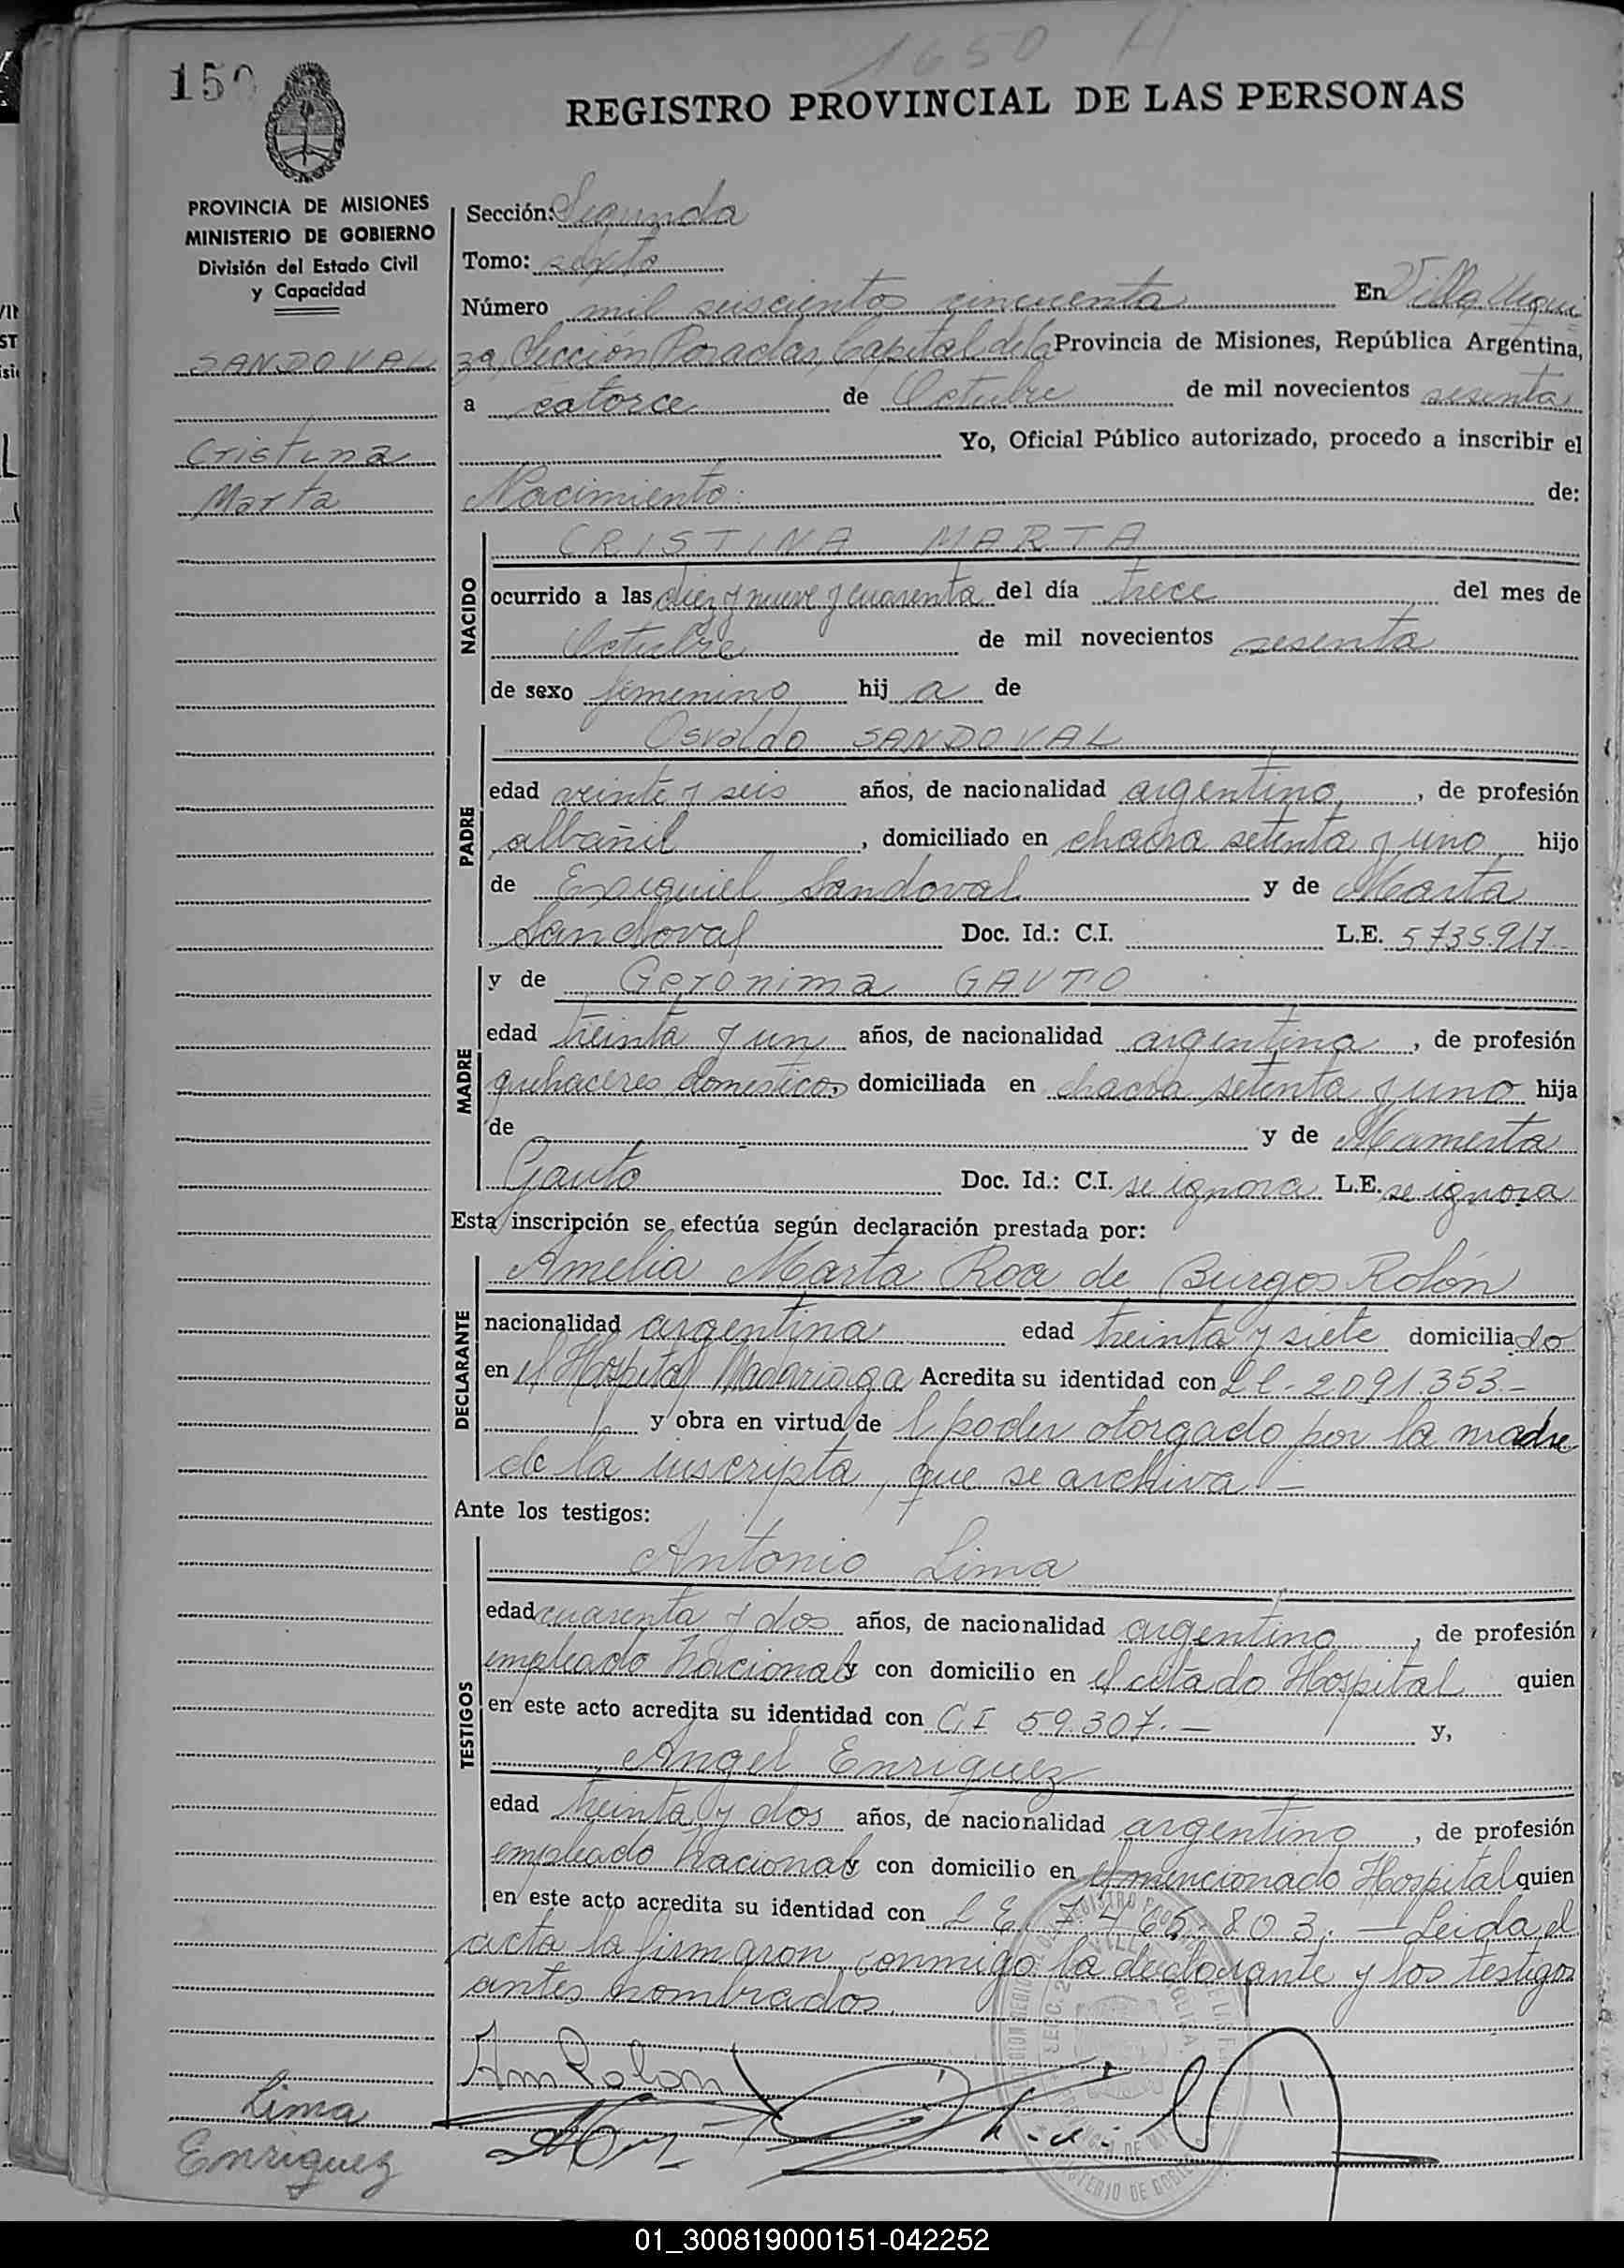 150
1650 H
REGISTRO PROVINCIAL DE LAS PERSONAS
PROVINCIA DE MISIONES
MINISTERIO DE GOBIERNO
División del Estado Civil
y Capacidad
SANDOVAL
Cristina
Marta
Sección: Segunda
Tomo: sexto
Número mil seiscientos cincuenta En Villa Urqui
za, Sección Posadas, Capital de la Provincia de Misiones, República Argentina,
a catorce de Octubre de mil novecientos sesenta
Yo, Oficial Público autorizado, procedo a inscribir el
Nacimiento de:
NACIDO
CRISTINA MARTA
ocurrido a las diez y nueve y cuarenta del día trece del mes de
Octubre de mil novecientos sesenta
de sexo femenino hij a de
PADRE
Osvaldo SANDOVAL
edad veinte y seis años, de nacionalidad argentino, de profesión
albañil, domiciliado en chacra setenta y uno hijo
de Exequiel Sandoval y de Marta
Sandoval Doc. Id.: C.I. L.E. 5735.917
MADRE
y de Geronima GAUTO
edad treinta y un años, de nacionalidad argentina, de profesión
quehaceres domesticos domiciliada en chacra setenta y uno hija
de - y de Mamerta
Gauto Doc. Id.: C.I. se ignora L.E. se ignora
Esta inscripción se efectúa según declaración prestada por:
DECLARANTE
Amelia Marta Roa de Burgos Rolón
nacionalidad argentina edad treinta y siete domiciliado
en el Hospital Madariaga Acredita su identidad con LC- 2091.353.-
y obra en virtud de l poder otorgado por la madre
de la inscripta, que se archiva.-
Ante los testigos:
TESTIGOS
Antonio Lima
edad cuarenta y dos años, de nacionalidad argentino, de profesión
empleado nacional y con domicilio en el citado Hospital quien
en este acto acredita su identidad con C.I 59.307.- y,
Angel Enriquez
edad treinta y dos años, de nacionalidad argentino, de profesión
empleado nacional y con domicilio en el mencionado Hospital quien
en este acto acredita su identidad con L E 7.465.803.- Leida el
acta la firmaron conmigo la declarante y los testigos
antes nombrados.
Am Rolon
Lima
Enriquez
01_300819000151-042252